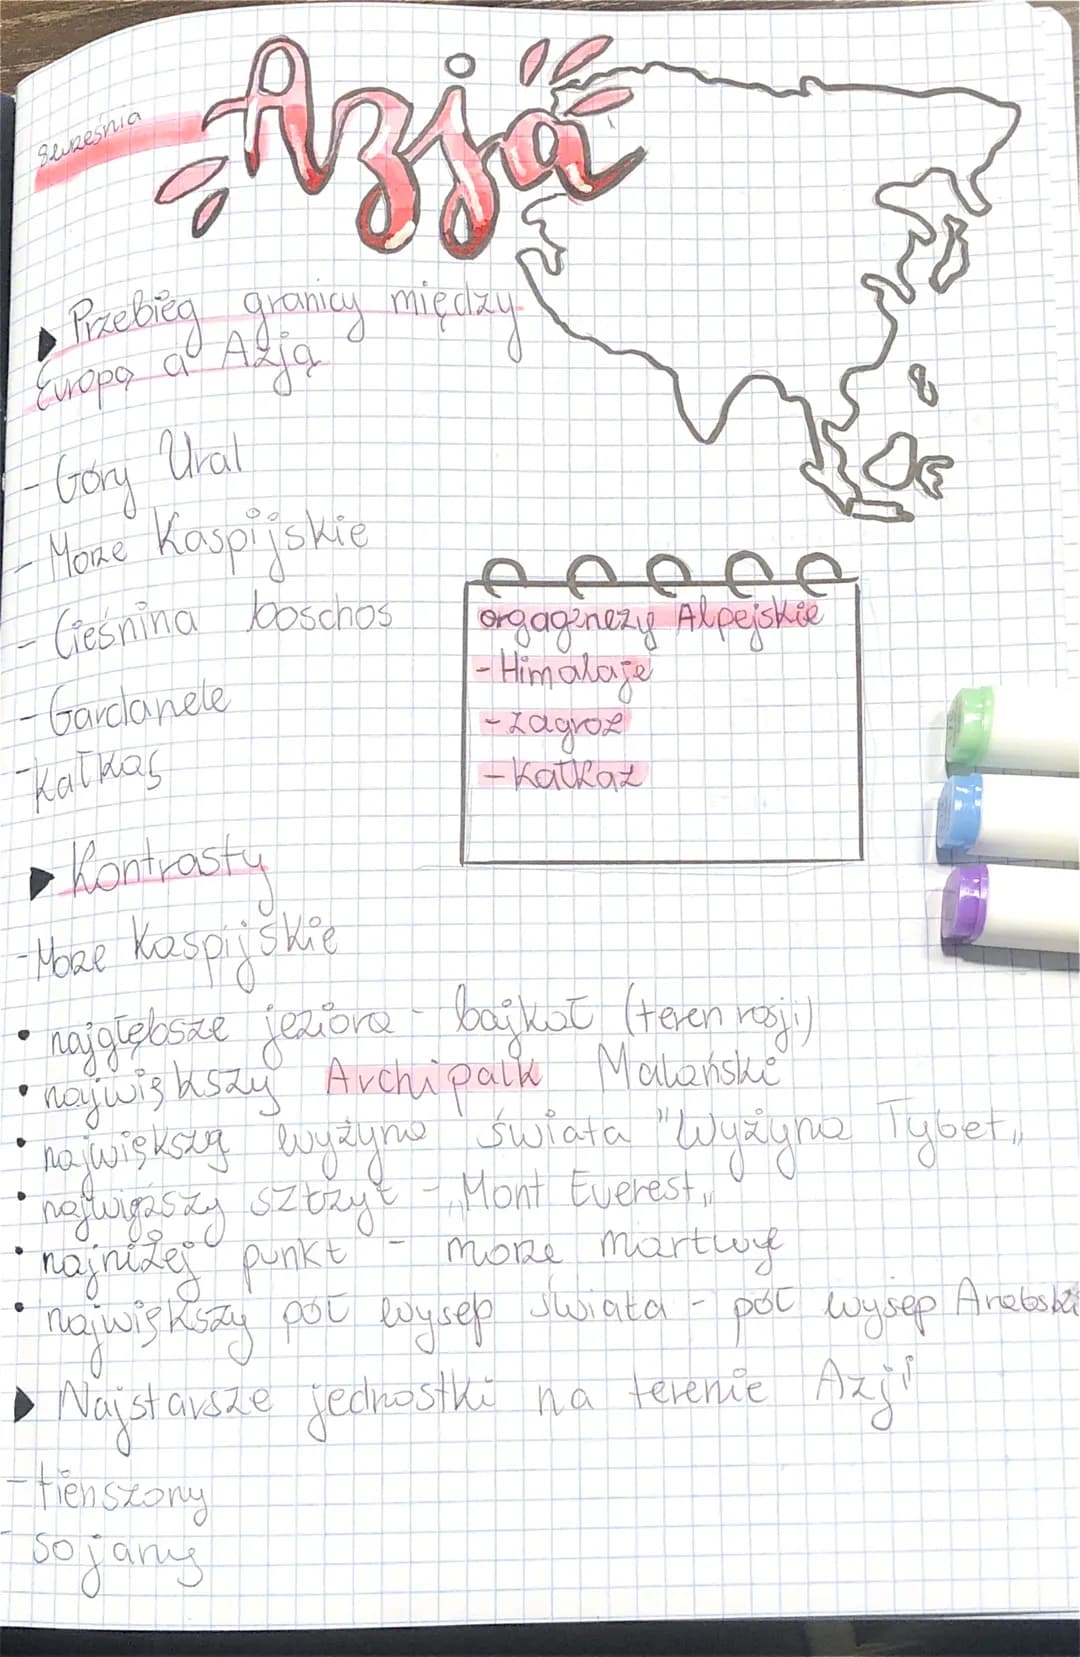 8 września
Azja
Przebieg granicy między
Europą a Azją
- Góry Ural
- Morze Kaspijskie
- Cieśnina boschos
- Gardanele
- Kałkas
orgagnezy Alpejskie
- Himalaje
- Zagroz
- Kałkaz
Kontrasty
- Morze Kaspijskie
• najgłębsze jeziora - bajkał (teren rosji)
• największy Archipalk Malański
• największą wyżyna świata "Wyżyna Tybet„
• najwigszy sztzyt - „Mont Everest„
• najniżej punkt - morze martwye
• największy pół wysep świata - pół wysep Arabski
Najstarsze jednostki na terenie Azji
- tienszony
- sojany